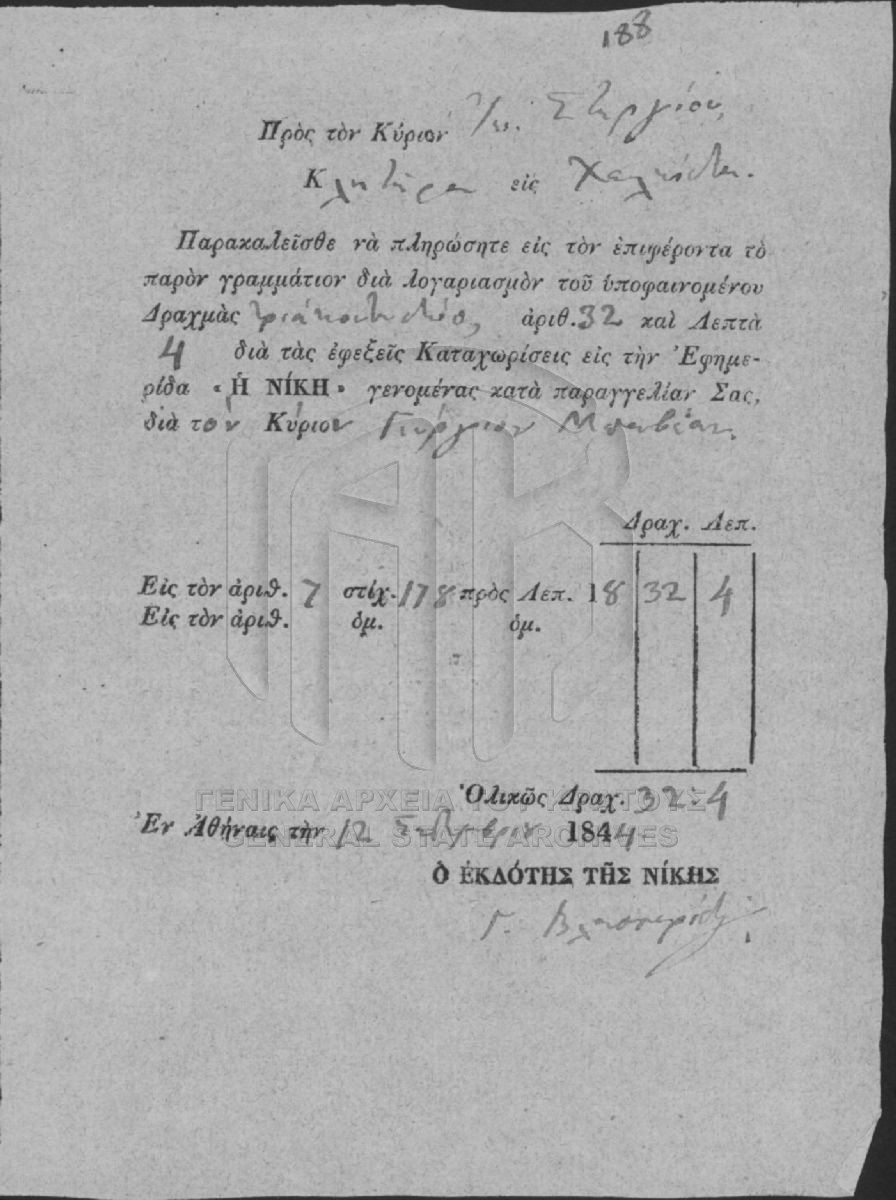 188
Πρὸς τὸν Κύριον Ἰω. Στεργίου,
Κλητῆρα εἰς Χαλκίδα.
Παρακαλεῖσθε νὰ πληρώσητε εἰς τὸν ἐπιφέροντα τὸ
παρὸν γραμμάτιον διὰ λογαριασμὸν τοῦ ὑποφαινομένου
Δραχμὰς τριάκοντα δύο, ἀριθ. 32 καὶ Λεπτὰ
4 διὰ τὰς ἐφεξεῖς Καταχωρίσεις εἰς τὴν Ἐφημε-
ρίδα «Ἡ ΝΙΚΗ» γενομένας κατὰ παραγγελίαν Σας,
διὰ τὸν Κύριον Γεώργιον
Δραχ. Λεπ.
Εἰς τὸν ἀριθ. 7 στίχ. 178 πρὸς Λεπ. 18 32 4
Εἰς τὸν ἀριθ. ὁμ. ὁμ.
Ὁλικῶς Δραχ. 32. 4
ΓΕΝΙΚΑ ΑΡΧΕΙΑ ΤΟΥ ΚΡΑΤΟΥΣ
Ἐν Ἀθήναις τὴν 12 1844
GENERAL STATE ARCHIVES
Ὁ ἘΚΔΌΤΗΣ ΤΗ͂Σ ΝΊΚΗΣ
Γ.